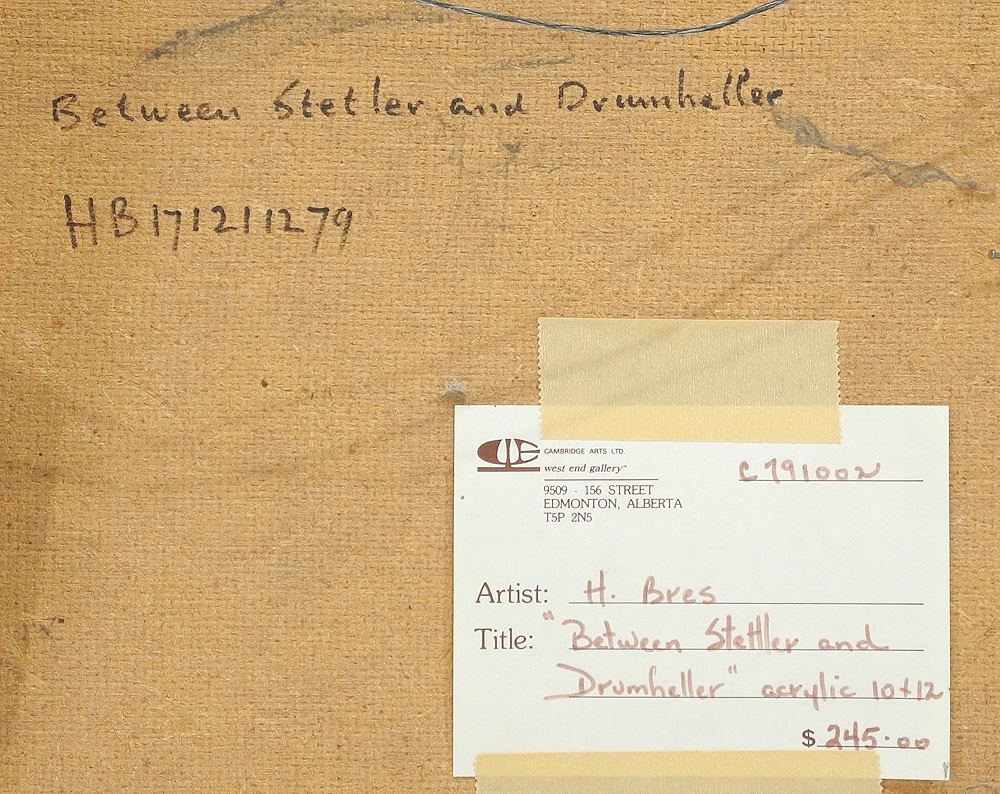 Between Stetler and Drumheller
HB171211279
CAMBRIDGE ARTS LTD.
west end gallery
9509 - 156 STREET
EDMONTON, ALBERTA
T5P 2N5
C791002
Artist: H. Bres
Title: "Between Stettler and
Drumheller" acrylic 10x12
$245.00